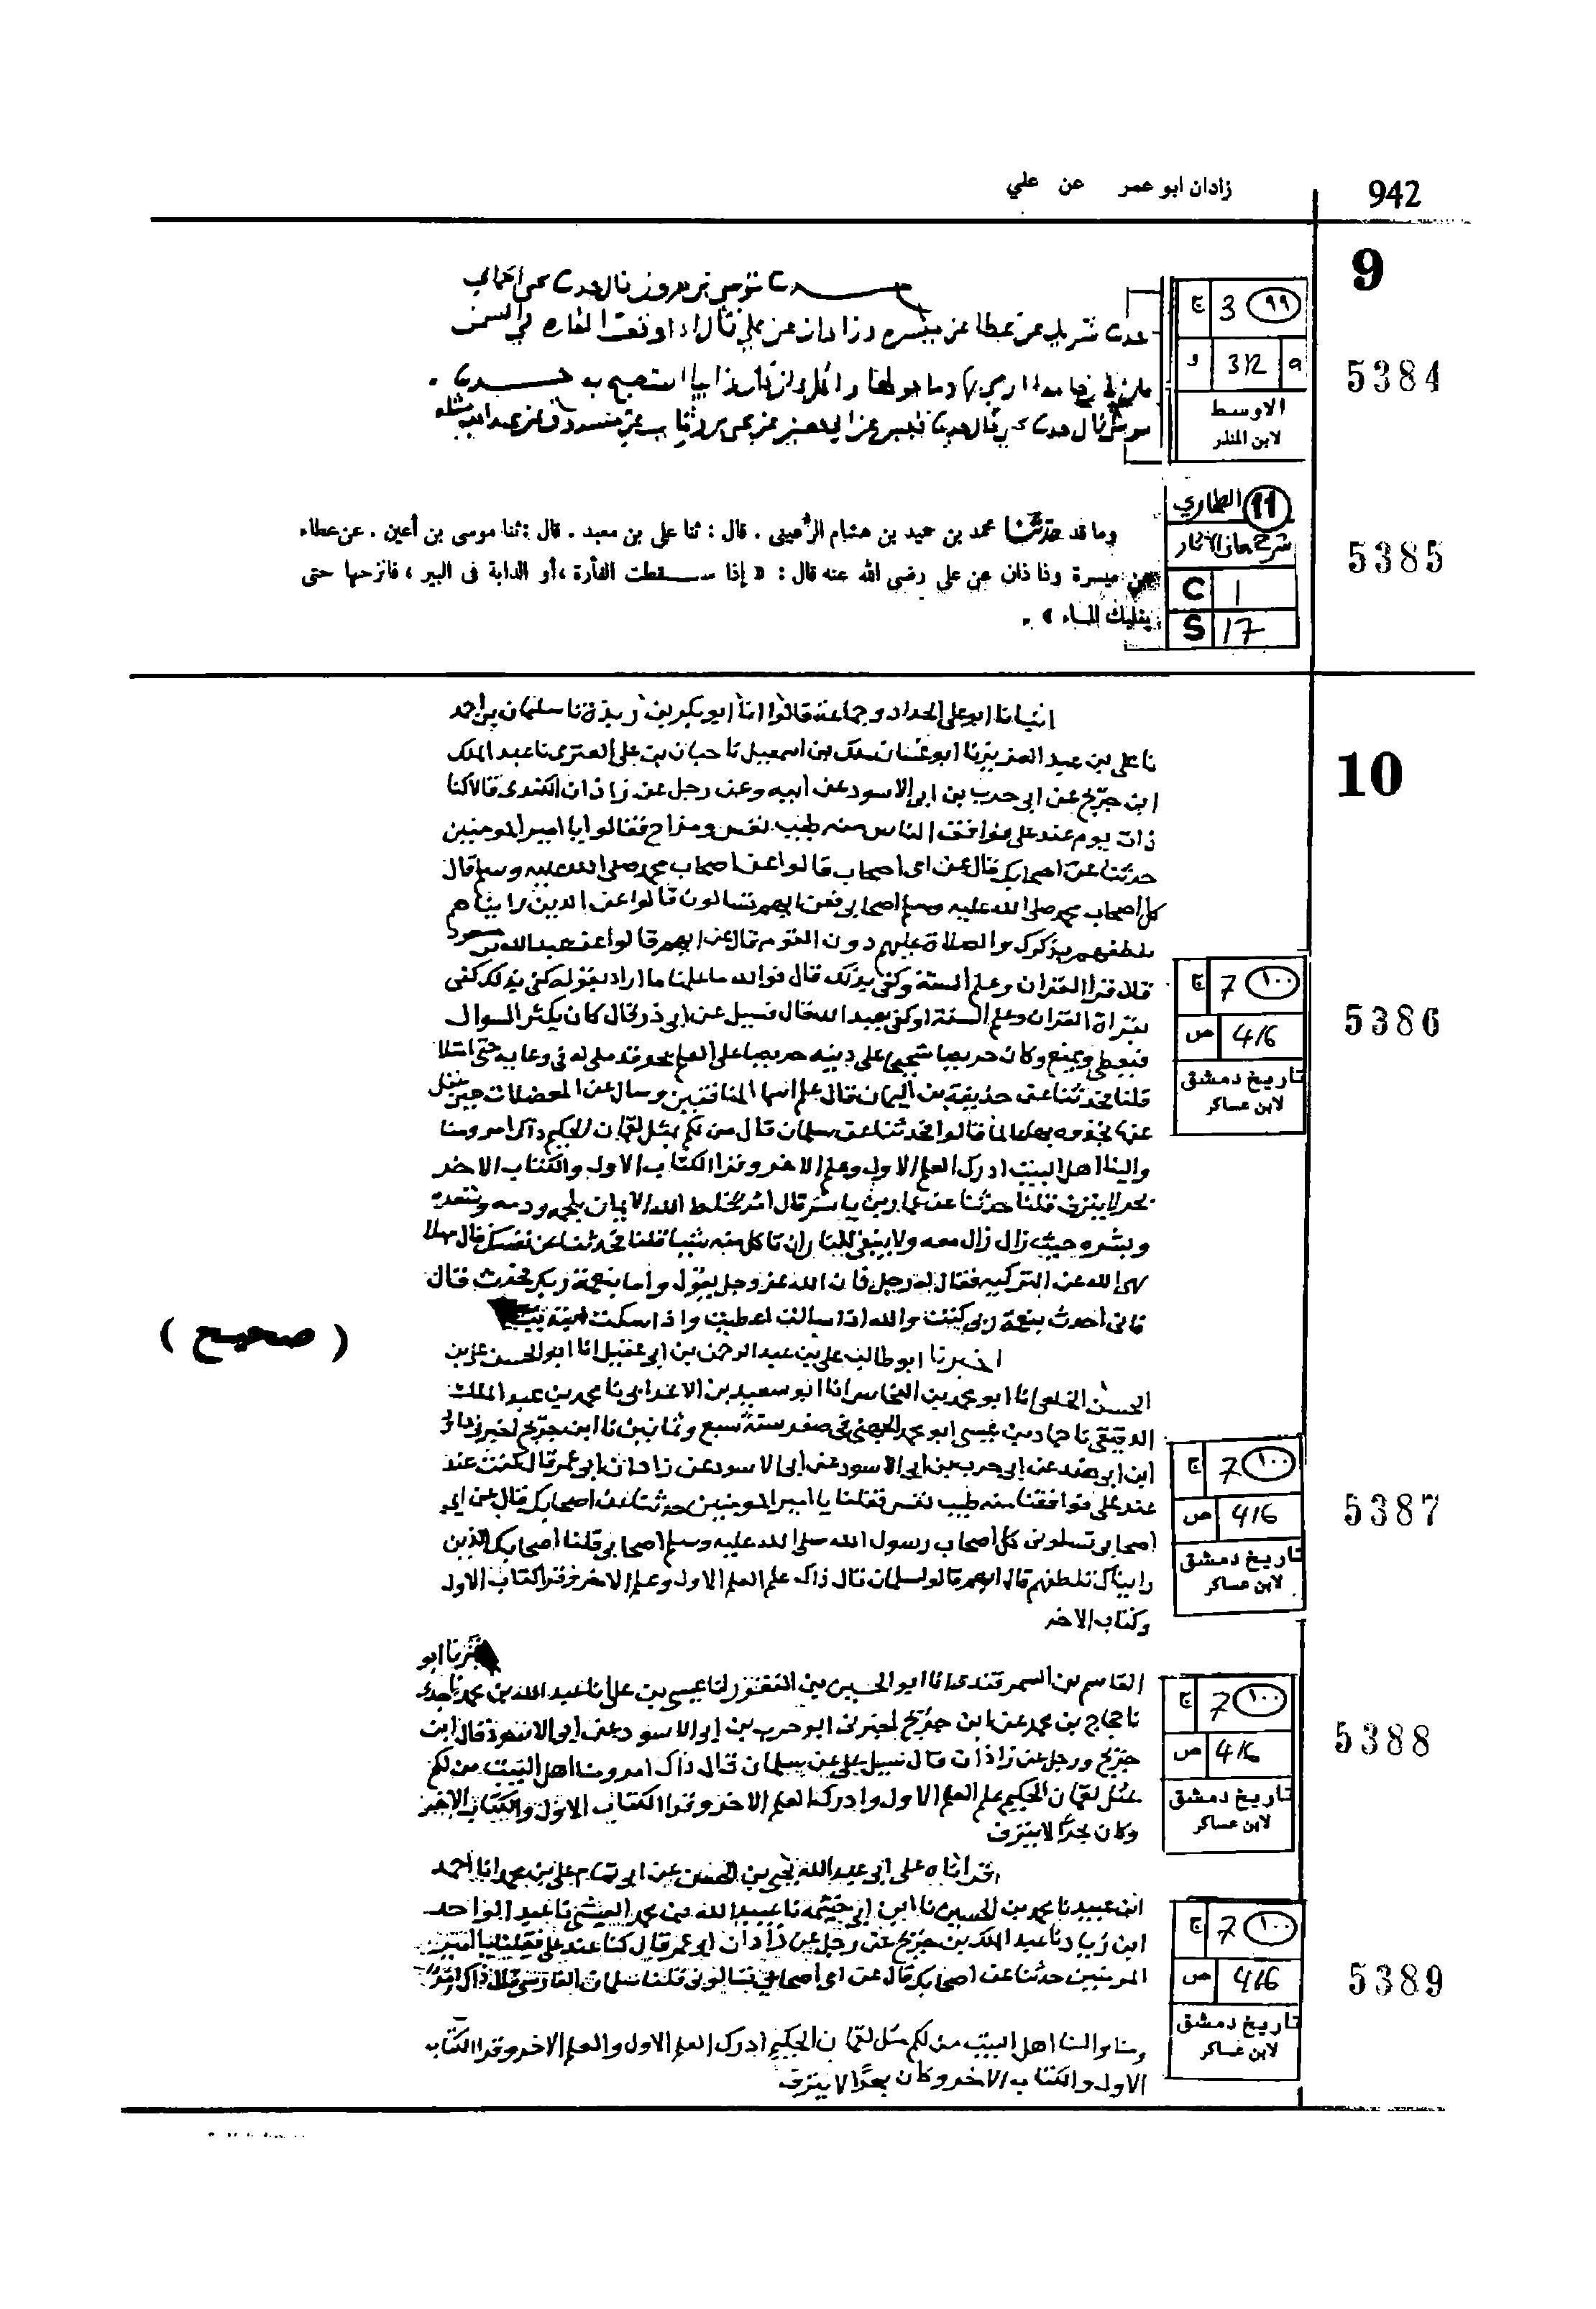 942
زادان ابو عمر عن علي
9
ج 3 ٩٩
و 312 a
الاوسط
لابن المنذر
5384
حدثنا موسى بن هروز قال حدثنا يحيى الحماني
حدثنا شريك عن عطا عن ميسره وزاذان عن علي قال اذا وقعت الفاره في السمن
قال حدثنا
11 الطحاوي
شرح معاني الآثار
C 1
S 17
5385
وما قد حدثنا محمد بن حميد بن هشام الرعيني . قال : ثنا علي بن معبد . قال : ثنا موسى بن أعين . عن عطاء
عن ميسرة وذا ذان عن علي رضى الله عنه قال : « إذا سقطت الفأرة ، أو الدابة فى البير ، فانزحها حتى
يغلبك الماء » .
10
ج 7 ١٠٠
ص 416
تاريخ دمشق
لابن عساكر
5386
انبانا ابو علي الحداد وجماعة قالوا انا ابو بكر بن ريذة نا سليمان بن احمد
نا علي بن عبد العزيز نا ابو غسان ملك بن اسمعيل نا حبان بن علي العنزي نا عبد الملك
ابن جريج عن ابي حرب بن ابي الاسود عن ابيه وعن رجل عن زاذان الكندي قالا كنا
ذات يوم عند علي فوافق الناس منه طيب نفس ومزاح فقالوا يا امير المومنين
حدثنا عن اصحابك قال عن اي اصحابي قالوا عن اصحاب محمد صلى الله عليه وسلم قال
كل اصحاب محمد صلى الله عليه وسلم اصحابي فعن ايهم تسالون قالوا عن الذين رايناهم
تلطفهم بذكرك والصلاة عليهم دون القوم قال عن ايهم قالوا عن عبد الله بن مسعود
قال قرا القران وعلم السنة وكفى بذلك قال فوالله ما علمنا ما اراد بقوله كفى بذلك كفى
بقراة القران وعلم السنة او كفى بعبد الله قال فسيل عن ابي ذر قال كان يكثر السوال
فيعطى ويمنع وكان حريصا شحيحا على دينه حريصا على العلم بحر قد ملي له في وعايه حتى امتلا
قلنا فحدثنا عن حذيفة بن اليمان قال علم اسما المنافقين وسال عن المعضلات حين غفل
عنها تجدوه بها عالما قالوا فحدثنا عن سلمان قال من لكم بمثل لقمان الحكيم ذاك امرو منا
والينا اهل البيت ادرك العلم الاول وعلم الاخر وقرا الكتاب الاول والكتاب الاخر
بحر لا ينزف قلنا حدثنا عن عمار بن ياسر قال امرؤ خلط الله الايمان بلحمه ودمه وشعره
وبشره حيث زال زال معه ولا ينبغي للنار ان تاكل منه شيئا قلنا فحدثنا عن نفسك قال مهلا
نهى الله عن التزكية فقال له رجل فان الله عز وجل يقول واما بنعمة ربك فحدث قال
فاني احدث بنعمة ربي كنت والله اذا سالت اعطيت واذا سكت
( صحيح )
ج 7 ١٠٠
ص 416
تاريخ دمشق
لابن عساكر
5387
اخبرنا ابو طالب علي بن عبد الرحمن بن ابي عقيل انا ابو الحسن علي بن
الحسن الخلعي انا ابو محمد بن النحاس انا ابو سعيد بن الاعرابي نا محمد بن عبد الملك
الدقيقي نا حماد بن عيسى ابو محمد الجهني في صفر سنة سبع وثمانين نا ابن جريج اخبرني داود
ابن ابي هند عن ابي حرب بن ابي الاسود عن ابي الاسود عن زاذان ابي عمر قال كنت عند
عند علي فوافقنا منه طيب نفس فقلنا يا امير المومنين حدثنا عن اصحابك قال عن اي
اصحابي تسلوني كل اصحاب رسول الله صلى الله عليه وسلم اصحابي قلنا اصحابك الذين
رايناك تلطفهم قال ايهم قالوا سلمان قال ذاك علم العلم الاول وعلم الاخر وقرا كتاب الاول
وكتاب الاخر
ج 7 ١٠٠
ص 416
تاريخ دمشق
لابن عساكر
5388
اخبرنا ابو
القاسم بن السمرقندي انا ابو الحسين بن النقور انا عيسى بن علي انا عبد الله بن محمد نا جدي
نا حجاج بن محمد عن ابن جريج اخبرني ابو حرب بن ابي الاسود عن ابي الاسود قال ابن
جريج ورجل عن زاذان قال سيل علي عن سلمان قال ذاك امرو منا اهل البيت من لكم
بمثل لقمان الحكيم علم العلم الاول وادرك العلم الاخر وقرا الكتاب الاول والكتاب الاخر
وكان بحرًا لا ينزف
ج 7 ١٠٠
ص 416
تاريخ دمشق
لابن عساكر
5389
قراناه على ابي عبد الله يحيى بن الحسن عن ابي تمام علي بن محمد انا احمد
ابن عبيد نا محمد بن الحسين نا ابن ابي خيثمة نا عبيد الله بن محمد العيشي نا عبد الواحد
ابن زياد نا عبد الملك بن جريج عن رجل عن زاذان ابي عمر قال كنا عند علي فقلنا يا امير
المومنين حدثنا عن اصحابك قال عن اي اصحابي تسالوني قلنا سلمان الفارسي قال ذاك امرؤ
منا والينا اهل البيت من لكم مثل لقمان الحكيم ادرك العلم الاول والعلم الاخر وقرا الكتاب
الاول والكتاب الاخر وكان بحرًا لا ينزف